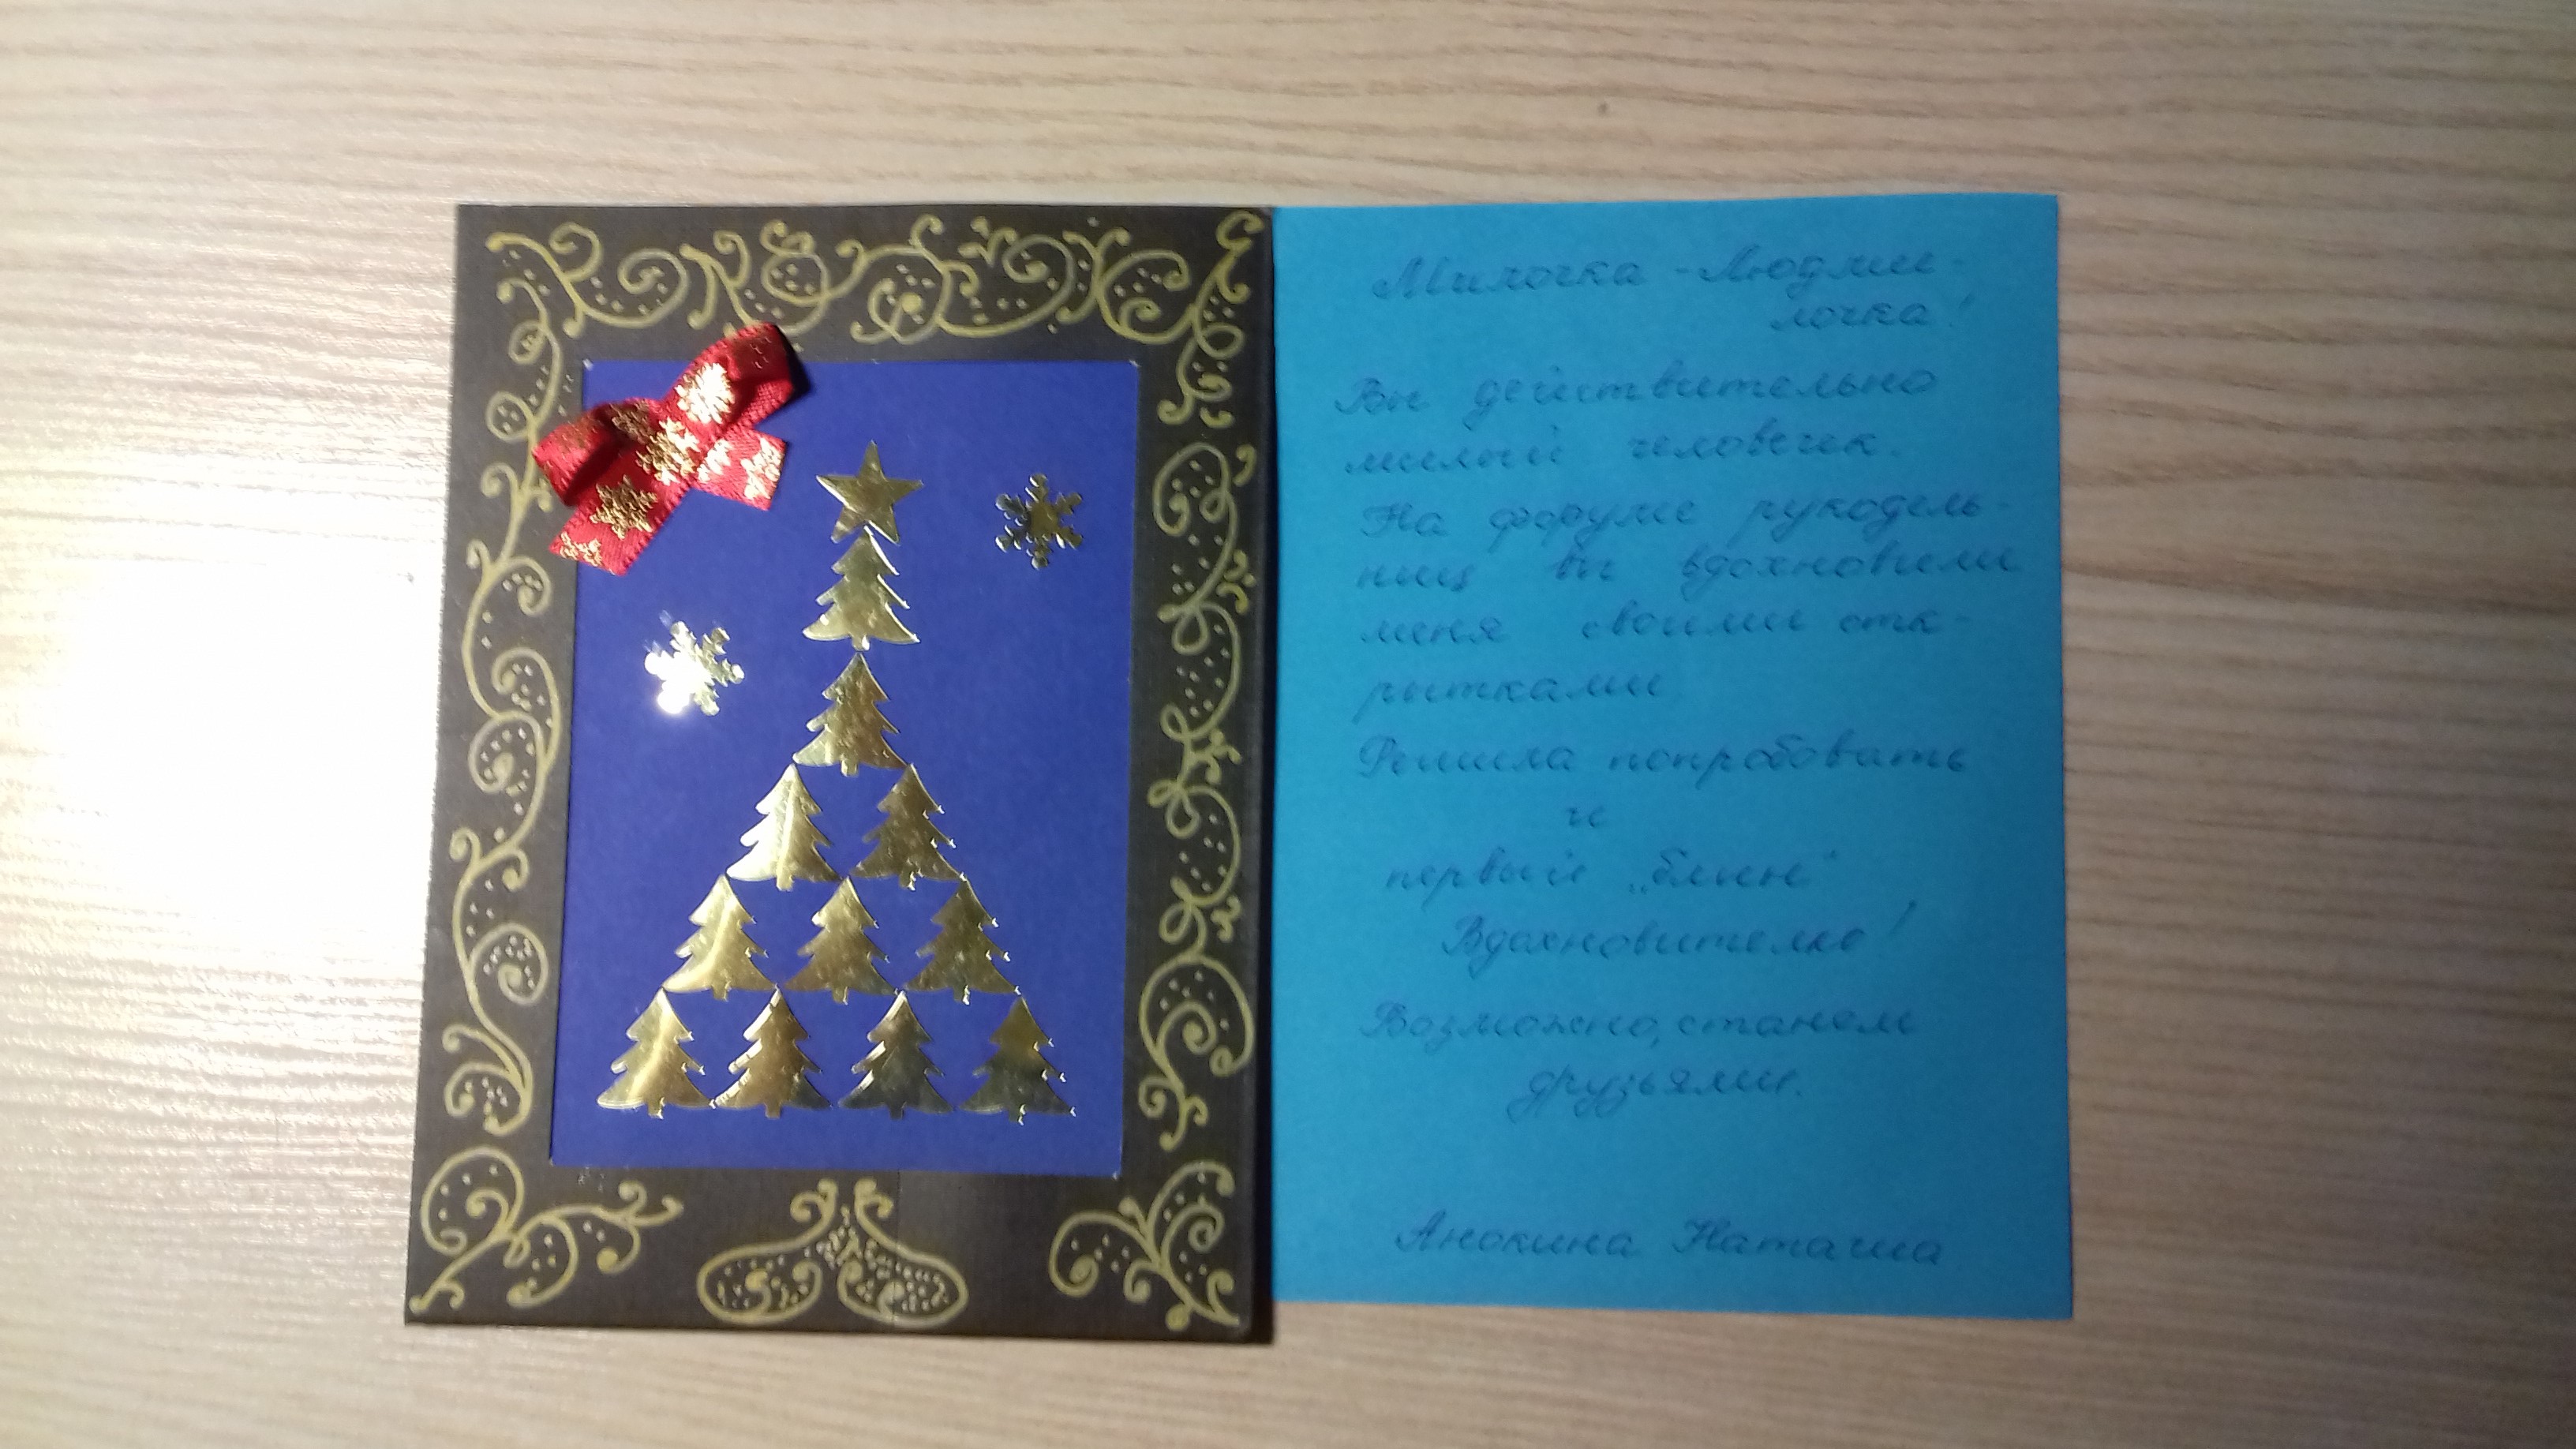 Милочка - Людми-
лочка!
Вы действительно
милый человечек.
На форуме рукодель-
ниц вы вдохновили
меня своими отк-
рытками
Решила попробовать
и
первый „блин“
Вдохновителю!
Возможно, станем
друзьями.
Анокина Наташа